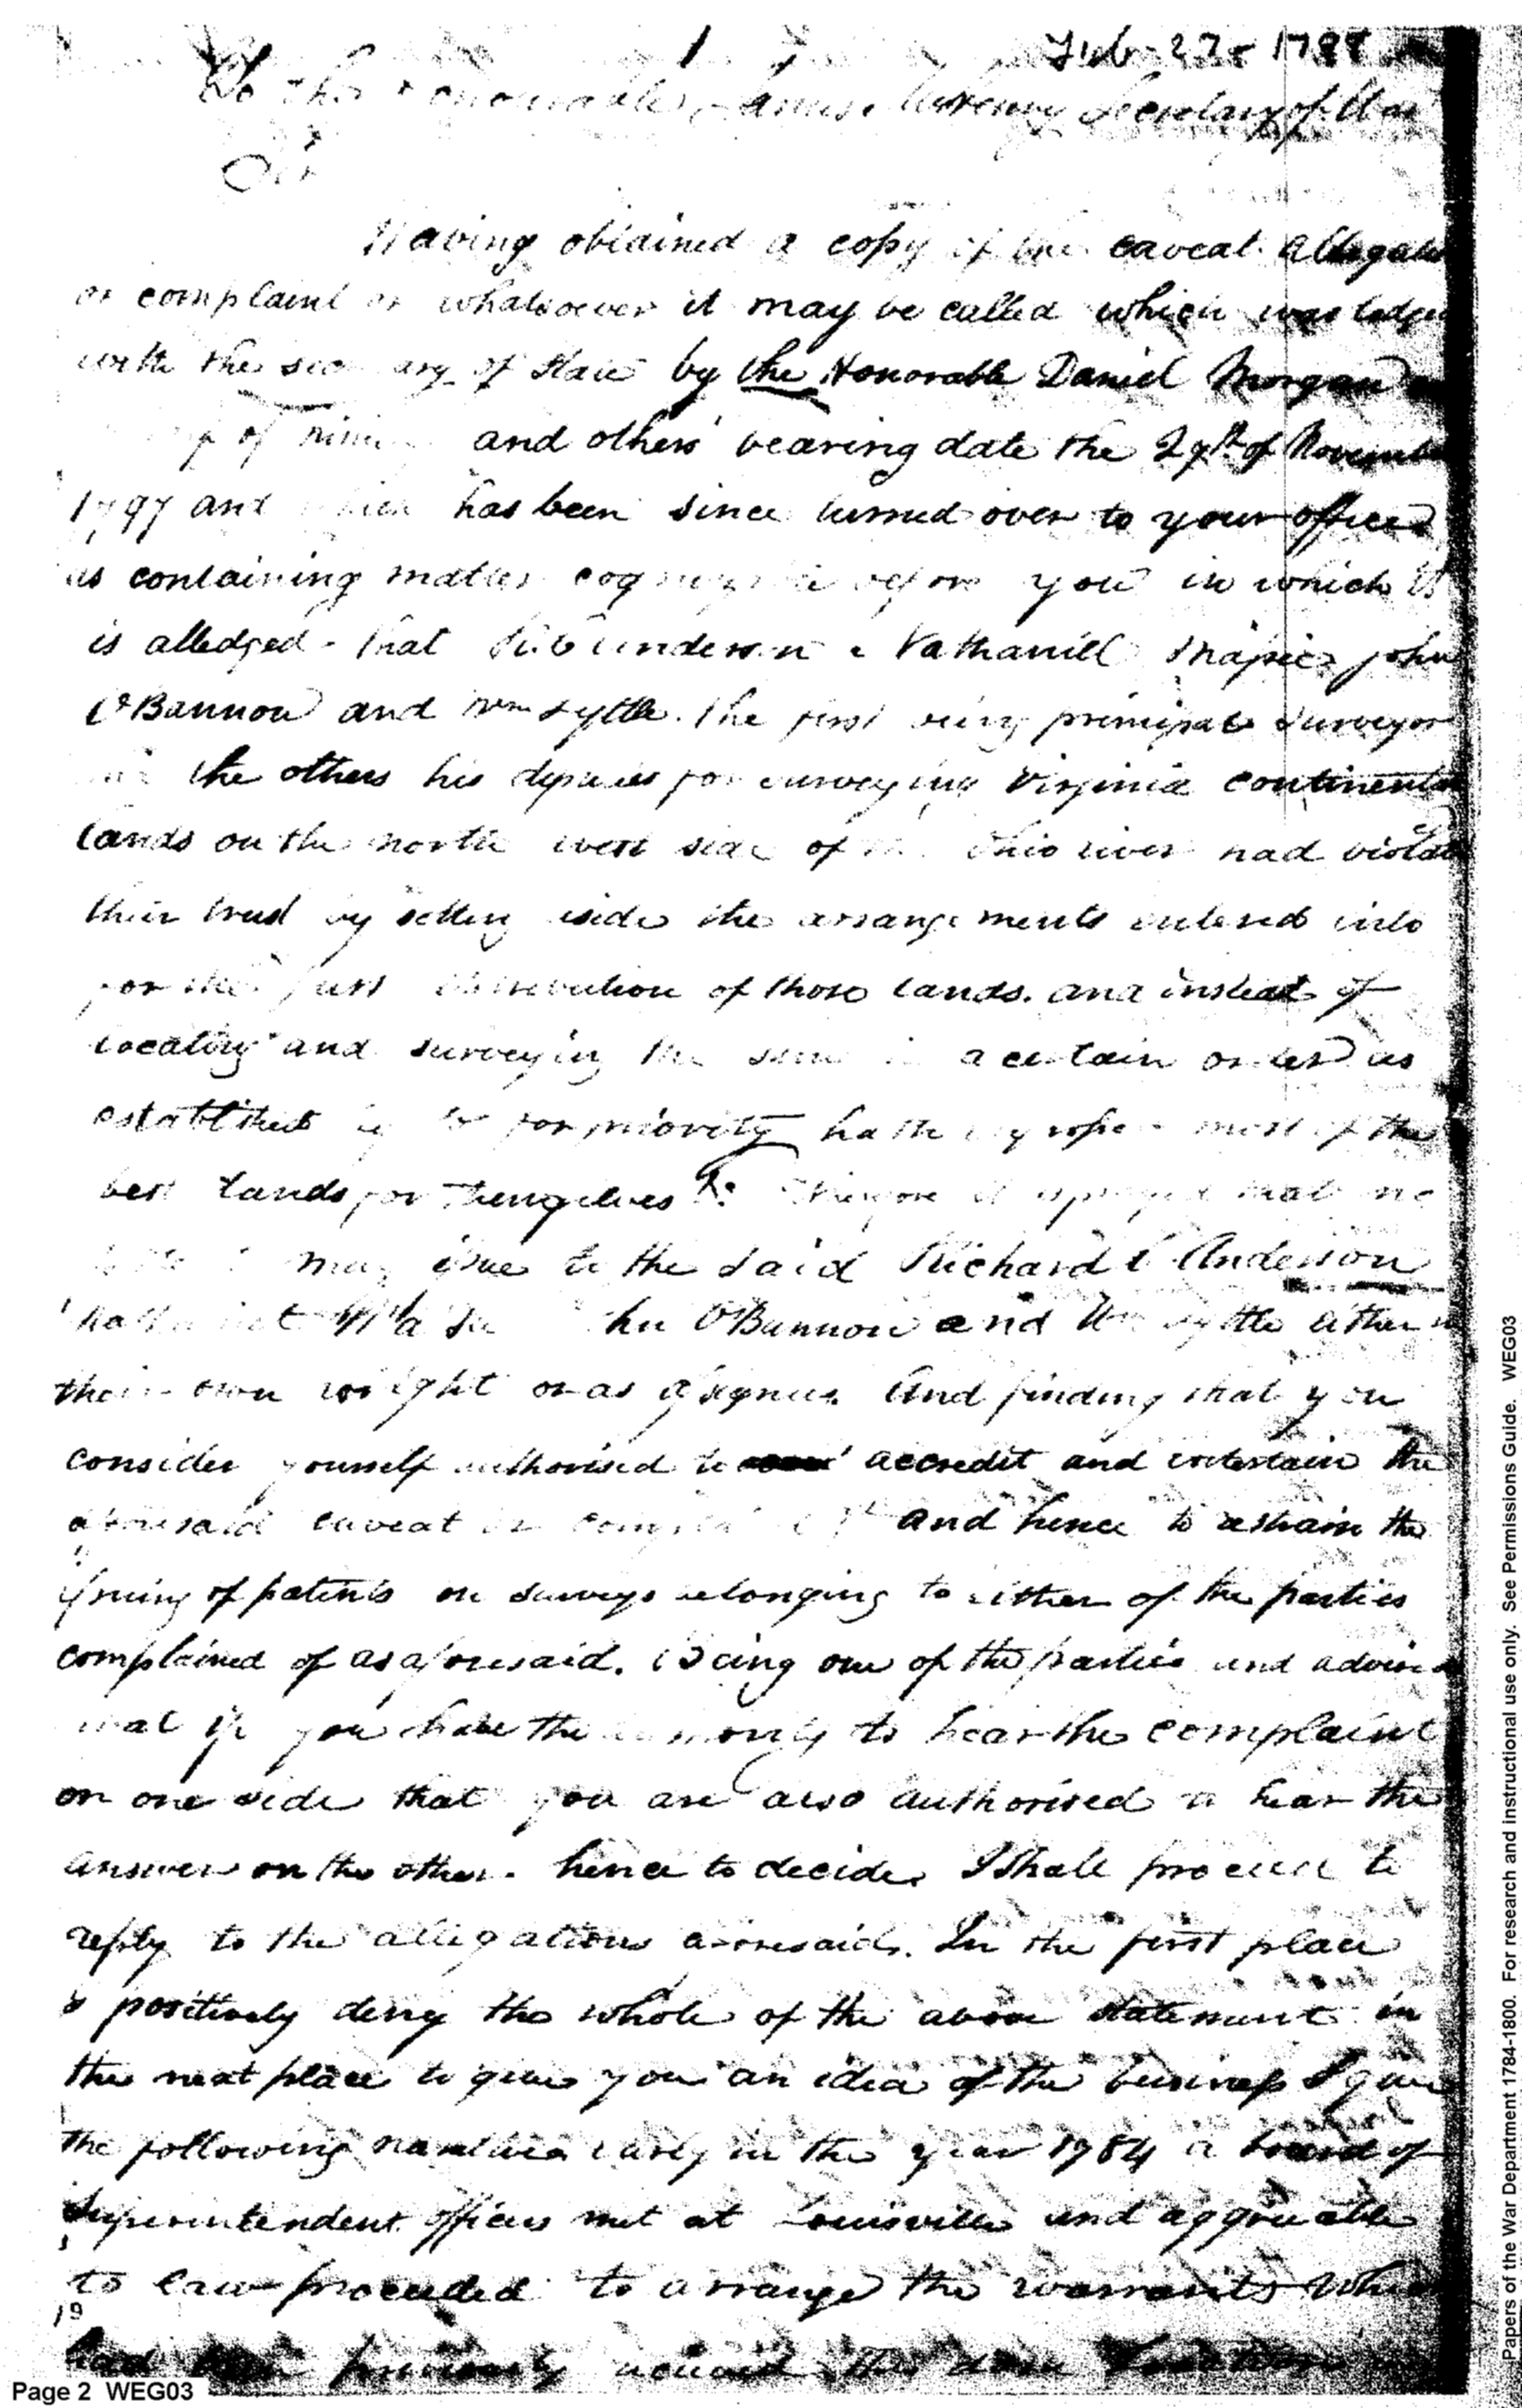 Feb 27 1798
To the Honourable James McHenry Secretary of War
Sir
Having obtained a copy of the caveat allegation
or complaint or whatsoever it may be called which was lodged
with the secretary of State by the Honorable Daniel Morgan
and others bearing date the 29th of November
1797 and which has been since turned over to your office
as containing matter cognizable before you in which it
is alledged - that Anderson Nathaniel Massie John
O'Bannon and Wm Lytle. the first being principal Surveyor
and the others his deputies for surveying Virginia continental
lands on the north west side of the Ohio river had violated
their trust by setting aside the arrangements entered into
for the just distribution of those lands. and instead of
locating and surveying the same in a certain order as
established by lot for priority hath most of the
best lands for themselves &c. Therefore it is prayed that no
may issue to the said Richard C Anderson
Massie John O'Bannon and Wm Lytle either in
their own wright or as assignees. And finding that you
consider yourself authorised to accredit and entertain the
aforesaid caveat or complaint &c and hence to restrain the
issuing of patents on surveys belonging to either of the parties
complained of as aforesaid. Being one of the parties and advised
that if you have the authority to hear the complaint
on one side that you are also authorised to hear the
answer on the other. hence to decide, I shall proceed to
reply to the allegations aforesaid. In the first place
I positively deny the whole of the above statement in
the next place to give you an idea of the business I give
the following narrative early in the year 1784 a board of
Superintendent officers met at Louisville and aggreeable
to law proceeded to arrange the warrants which
had been previously received this done
19
Page 2 WEG03
Papers of the War Department 1784-1800. For research and instructional use only. See Permissions Guide. WEG03